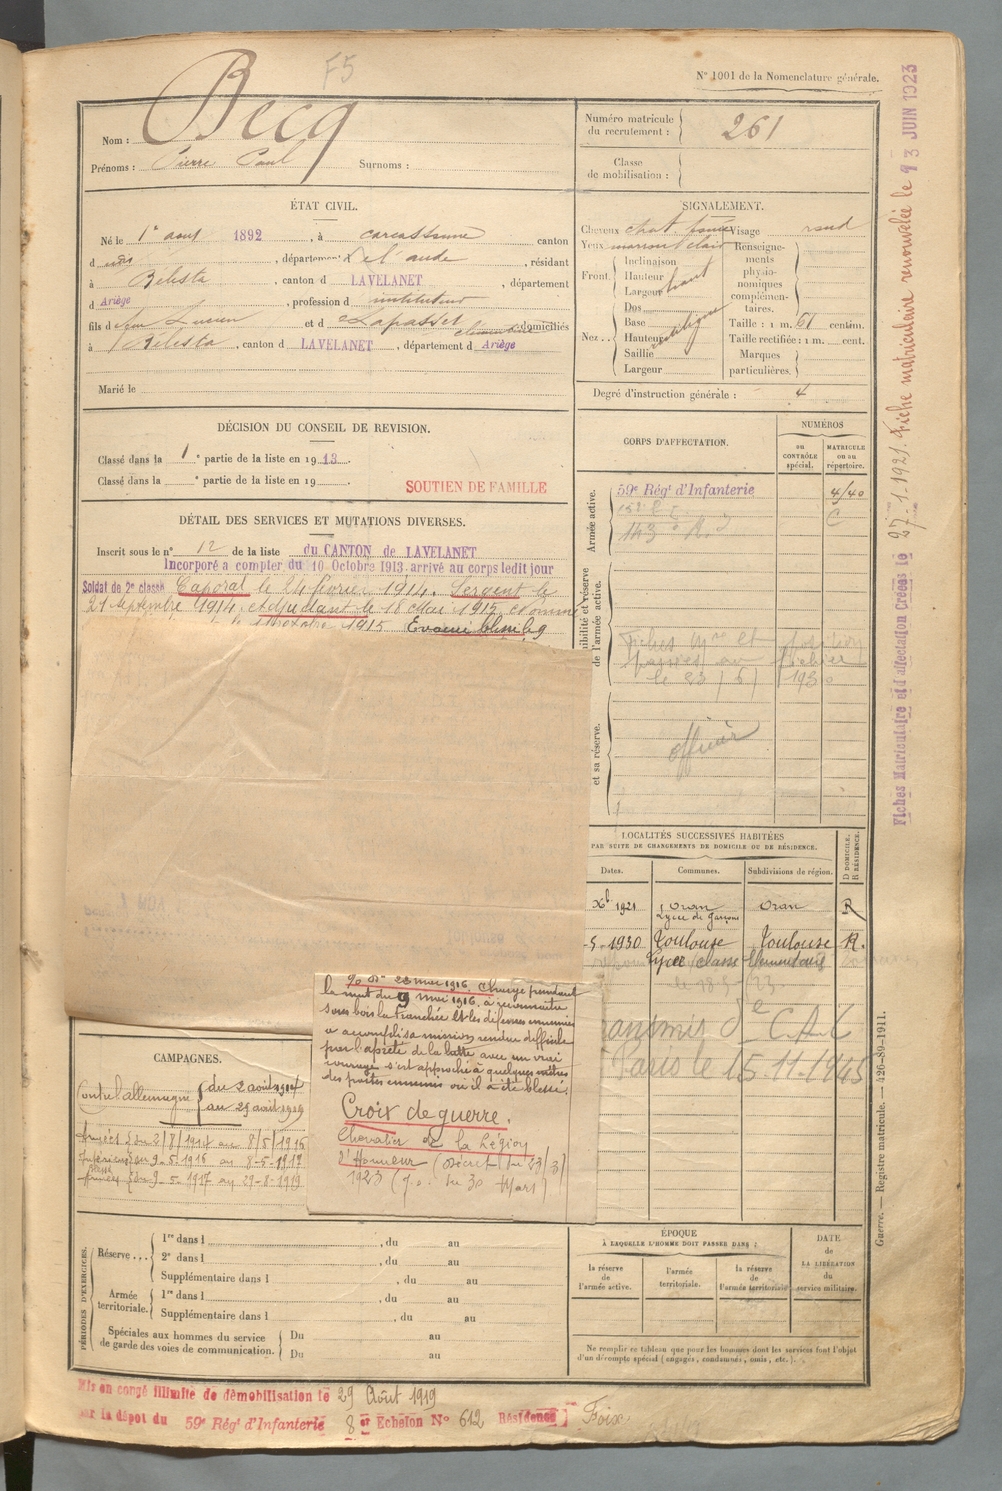 F5
N° 1001 de la Nomenclature générale.
Nom : Becq
Prénoms : Pierre Paul Surnoms :
Numéro matricule du recrutement : 261
Classe de mobilisation :
ÉTAT CIVIL.
Né le 1er aout 1892, à Carcassonne canton
d , département de l'aude, résidant
à Bélesta, canton d LAVELANET, département
d Ariège, profession d instituteur
fils de Lucien et d Lapasset domiciliés
à Bélesta, canton d LAVELANET, département d Ariège
Marié le
SIGNALEMENT.
Cheveux chat. foncé Visage rond
Yeux marron clair Renseignements physionomiques complémentaires.
Front. Inclinaison
Hauteur
Largeur
haut
Nez .. Dos
Base
Hauteur
Saillie
Largeur
rectiligne
Taille : 1 m. 61 centim.
Taille rectifiée : 1 m. cent.
Marques particulières.
Degré d'instruction générale : 4
DÉCISION DU CONSEIL DE REVISION.
Classé dans la 1e partie de la liste en 1913.
Classé dans la e partie de la liste en 19 .
SOUTIEN DE FAMILLE
DÉTAIL DES SERVICES ET MUTATIONS DIVERSES.
Inscrit sous le n° 12 de la liste du CANTON de LAVELANET
Incorporé a compter du 10 Octobre 1913. arrivé au corps ledit jour
Soldat de 2e classe Caporal le 24 février 1914. Sergent le
21 septembre 1914, adjudant le 18 mai 1915, nommé
octobre 1915 Evacué blessé le 9
CORPS D'AFFECTATION.
NUMÉROS
au CONTRÔLE spécial.
MATRICULE ou au répertoire.
Armée active.
59e Régt d'Infanterie 4/40
143e R.I C
bilité et réserve de l'armée active.
Fiches Mre et position
passées au fichier
le 23/5/1930
et sa réserve.
officier
LOCALITÉS SUCCESSIVES HABITÉES
PAR SUITE DE CHANGEMENTS DE DOMICILE OU DE RÉSIDENCE.
Dates. Communes. Subdivisions de région. D DOMICILE. R RÉSIDENCE.
Xb 1921 Oran Oran R
Lycée de Garçons
-5-1930 Toulouse Toulouse R.
Lycée (classe élémentaire
le 18-5-
Paris le 15-11-1945
23 mai 1916. Chargé pendant
la nuit du 9 mai 1916, à reconnaitre
sous bois la tranchée et les défenses ennemies
a accompli sa mission rendue difficile
par l'apreté de la lutte avec un vrai
courage s'est approché à quelques mètres
des postes ennemis où il a été blessé.
Croix de guerre.
Chevalier de la Légion
d'Honneur (Décret du 23/3/
1923 (J.o. du 30 Mars)
CAMPAGNES.
Contre l'allemagne { du 2 août 1914
au 29 août 1919
Armées du 2/8/1914 au 8/5/1916
Intérieur du 9-5-1916 au 8-5-1917
Armées du 9-5-1917 au 29-8-1919
PÉRIODES D'EXERCICES.
Réserve ... 1re dans l , du au
2e dans l , du au
Supplémentaire dans l , du au
Armée territoriale. 1re dans l , du au
Supplémentaire dans l , du au
Spéciales aux hommes du service de garde des voies de communication. Du au
Du au
ÉPOQUE
À LAQUELLE L'HOMME DOIT PASSER DANS :
la réserve de l'armée active.
l'armée territoriale.
la réserve de l'armée territoriale.
DATE de LA LIBÉRATION du service militaire.
Ne remplir ce tableau que pour les hommes dont les services font l'objet
d'un décompte spécial (engagés, condamnés, omis, etc.).
Mis en congé illimité de démobilisation le 29 Août 1919
par la dépôt du 59e Régt d'Infanterie 8e Échelon N° 612 Résidence Foix
Fiches Matriculaire et d'affectation Créées le 27-1-1921. Fiche matriculaire renouvelée le 13 JUIN 1923
Guerre. — Registre matricule. — 426-89-1911.